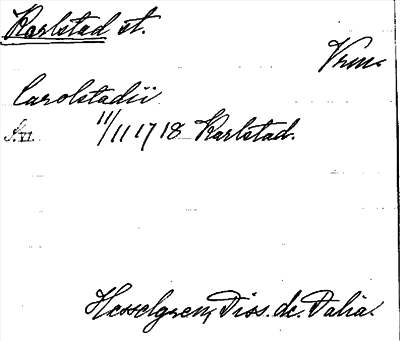 Karlstad st.
Vrml.
Carolstadii
S. VI. 11/11 1718 Karlstad.
Hesselgren, Diss. de Dalia.